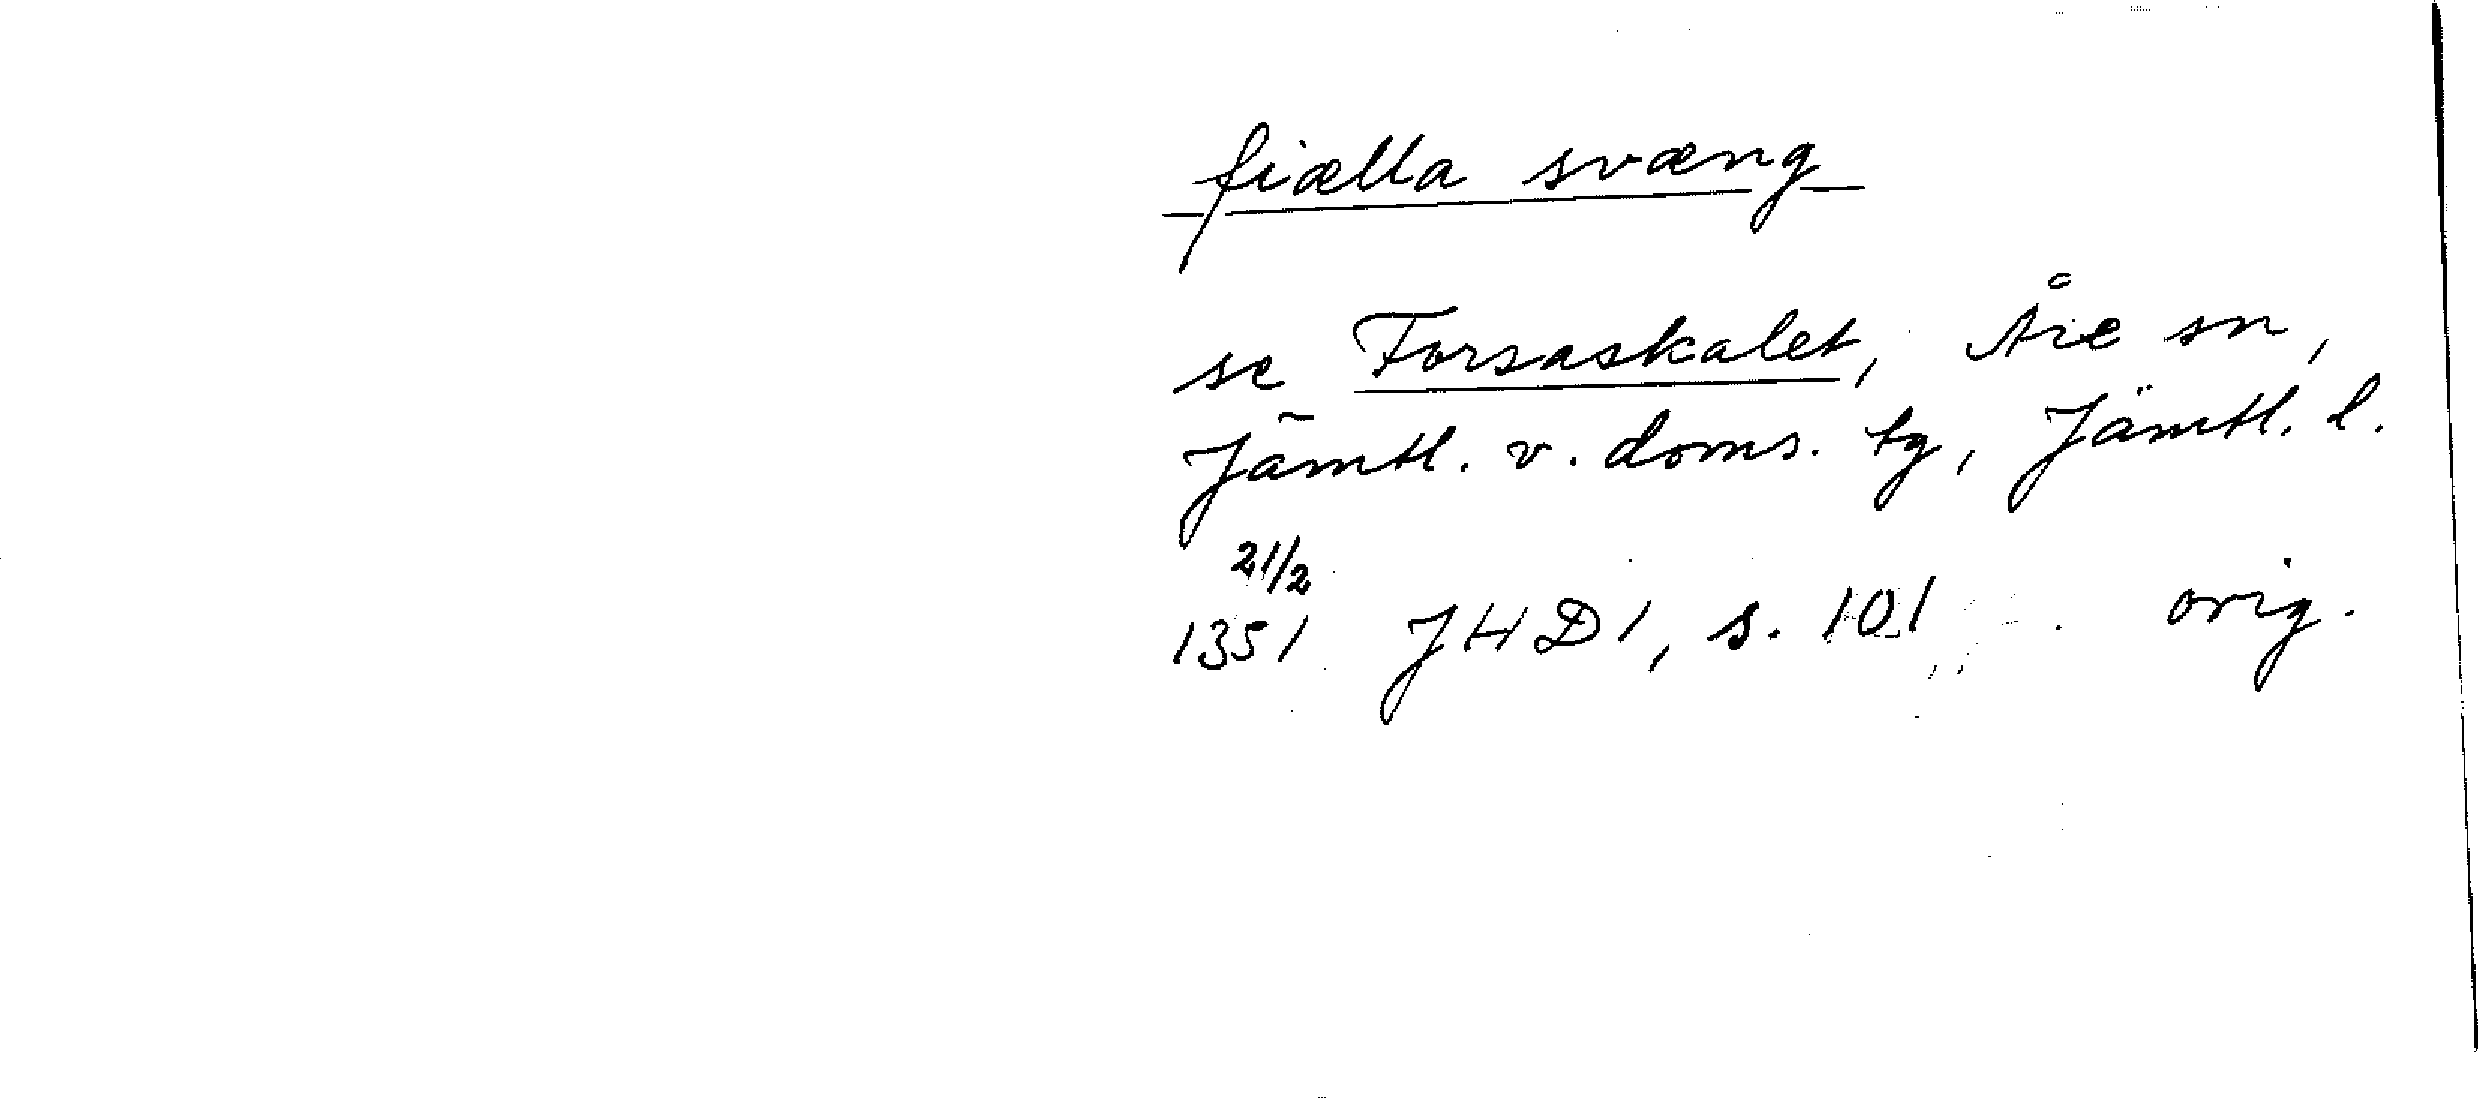 fiælla svæng
se Forsaskalet, Åre sn,
Jämtl. v. doms. tg, Jämtl. l.
21/2
1351 JHD1, s. 101 orig.